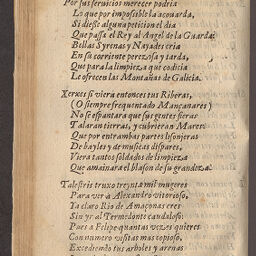 Por sus servicios merecer podria
Lo que por imposible la acouarda,
Si diesse alguna peticion el dia
Que passa el Rey al Angel de la Guarda:
Bellas Syrenas y Nayades cria
En su corriente perezosa y tarda,
Que para la limpieza que codicia
Le ofrecen las Montañas de Galicia.
Xerxes si viera entonces tus Riberas,
(O siempre frequentado Mançanares)
No se espantara que sus gentes fieras
Talaran tierras, y cubrieran Mares:
Que por entrambas partes lisonjeras
De bayles y de musicas dispares,
Viera tantos soldados de limpieza
Que amainara el blason de su grandeza.
Talestris truxo treynta mil mugeres
Para ver a Alexandro vitorioso,
Tu claro Rio de Amaçonas eres
Sin yr al Termodonte caudaloso:
Pues a Felipe quantas vezes quieres
Con numero visitas mas copioso,
Excediendo tus arboles y arenas